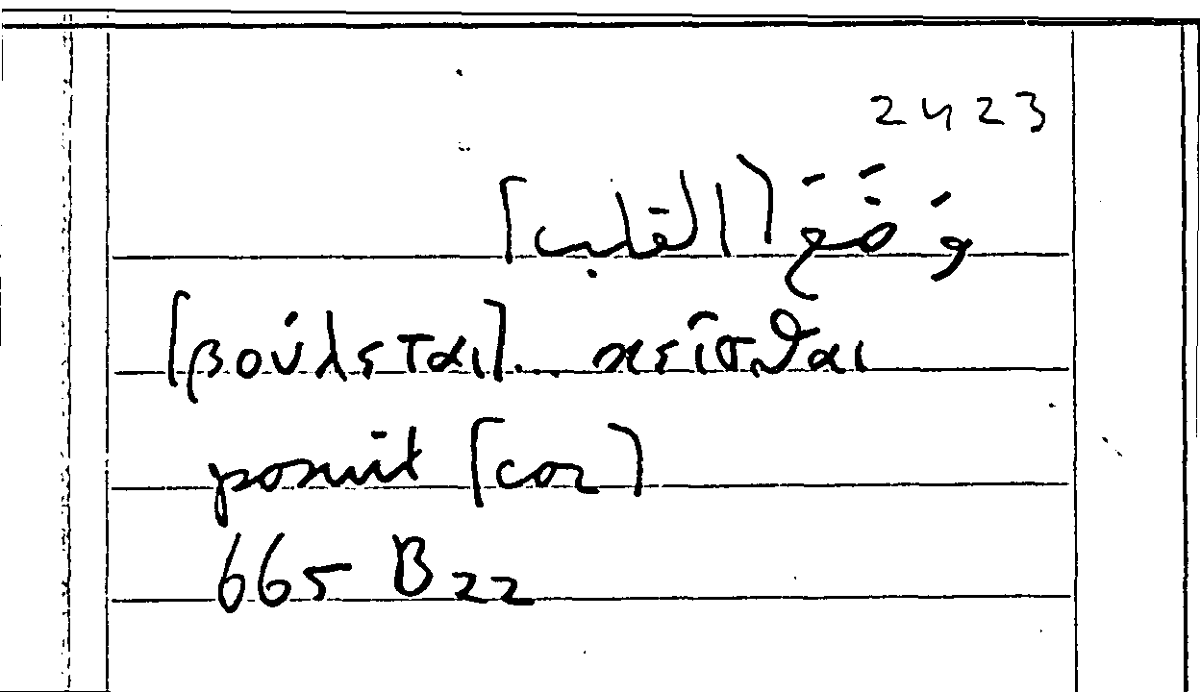 2423
وَضَعَ [القلب]
[βούλεται]... κεῖσθαι
posuit [cor]
665 B 22